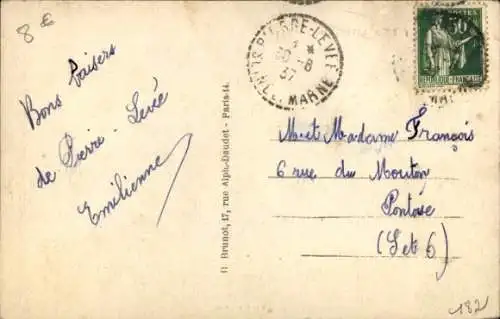 8 €
Bons baisers
de Pierre-Levée
Emilienne
D Brunot, 17, rue Alph.-Daudet - Paris-14.
PIERRE-LEVEE
30 -8
37
MARNE
POSTES
50
REPUBLIQUE FRANÇAISE
M. et Madame François
6 rue du Mouton
Pontoise
(S et O)
182